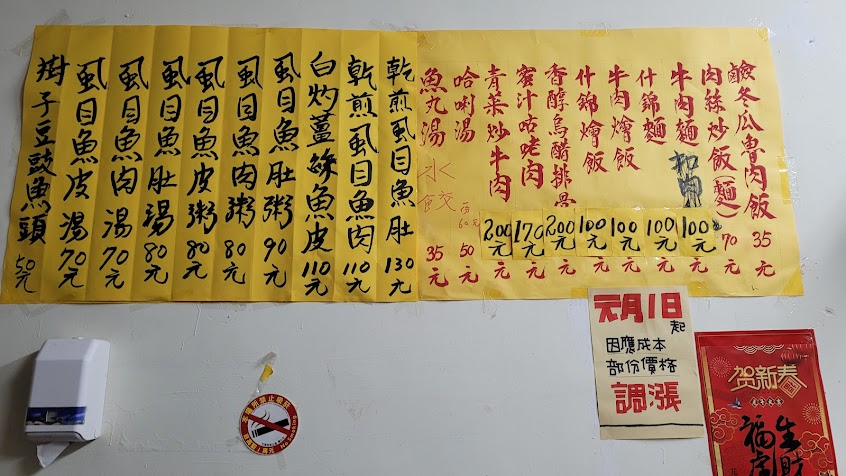 鹹冬瓜魯肉飯 35元
肉絲炒飯(麵) 70元
牛肉麵 100元
什錦麵 100元
牛肉燴飯 100元
什錦燴飯 100元
香醇烏醋排骨 200元
蜜汁咕咾肉 170元
青菜炒牛肉 200元
哈唎湯 50元
魚丸湯 35元
水餃
乾煎虱目魚肚 130元
乾煎虱目魚肉 110元
白灼薑絲魚皮 110元
虱目魚肚粥 90元
虱目魚肉粥 80元
虱目魚皮粥 80元
虱目魚肚湯 80元
虱目魚肉湯 70元
虱目魚皮湯 70元
樹子豆豉魚頭 50元
元月1日起
因應成本
部份價格
調漲
賀新春